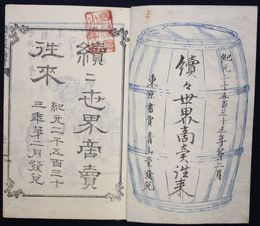 紀元二千五百三十三年第二月
續々世界商賣往来
東京書賈 青山堂發兌
續二世界商賣
往來
紀元二千五百三十
三年第二月發兌